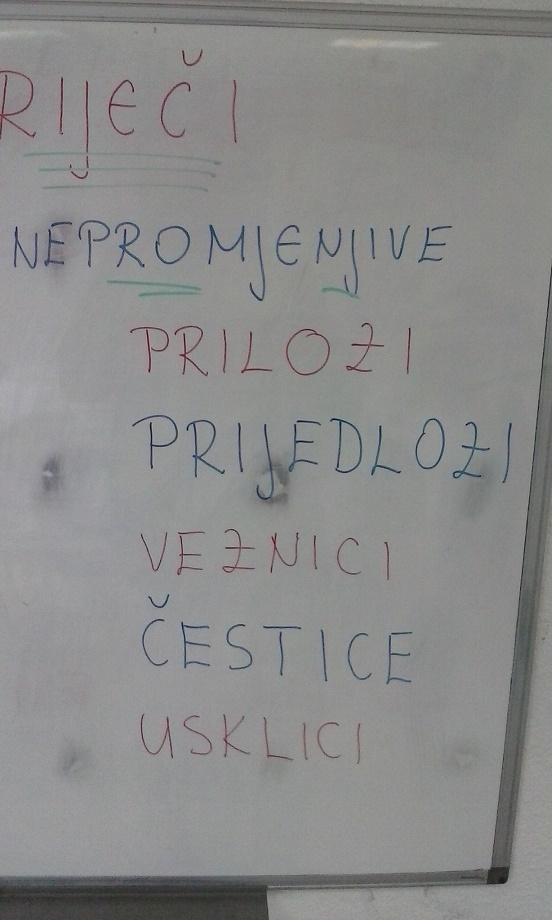 RIJEČI
NEPROMJENJIVE
PRILOZI
PRIJEDLOZI
VEZNICI
ČESTICE
USKLICI